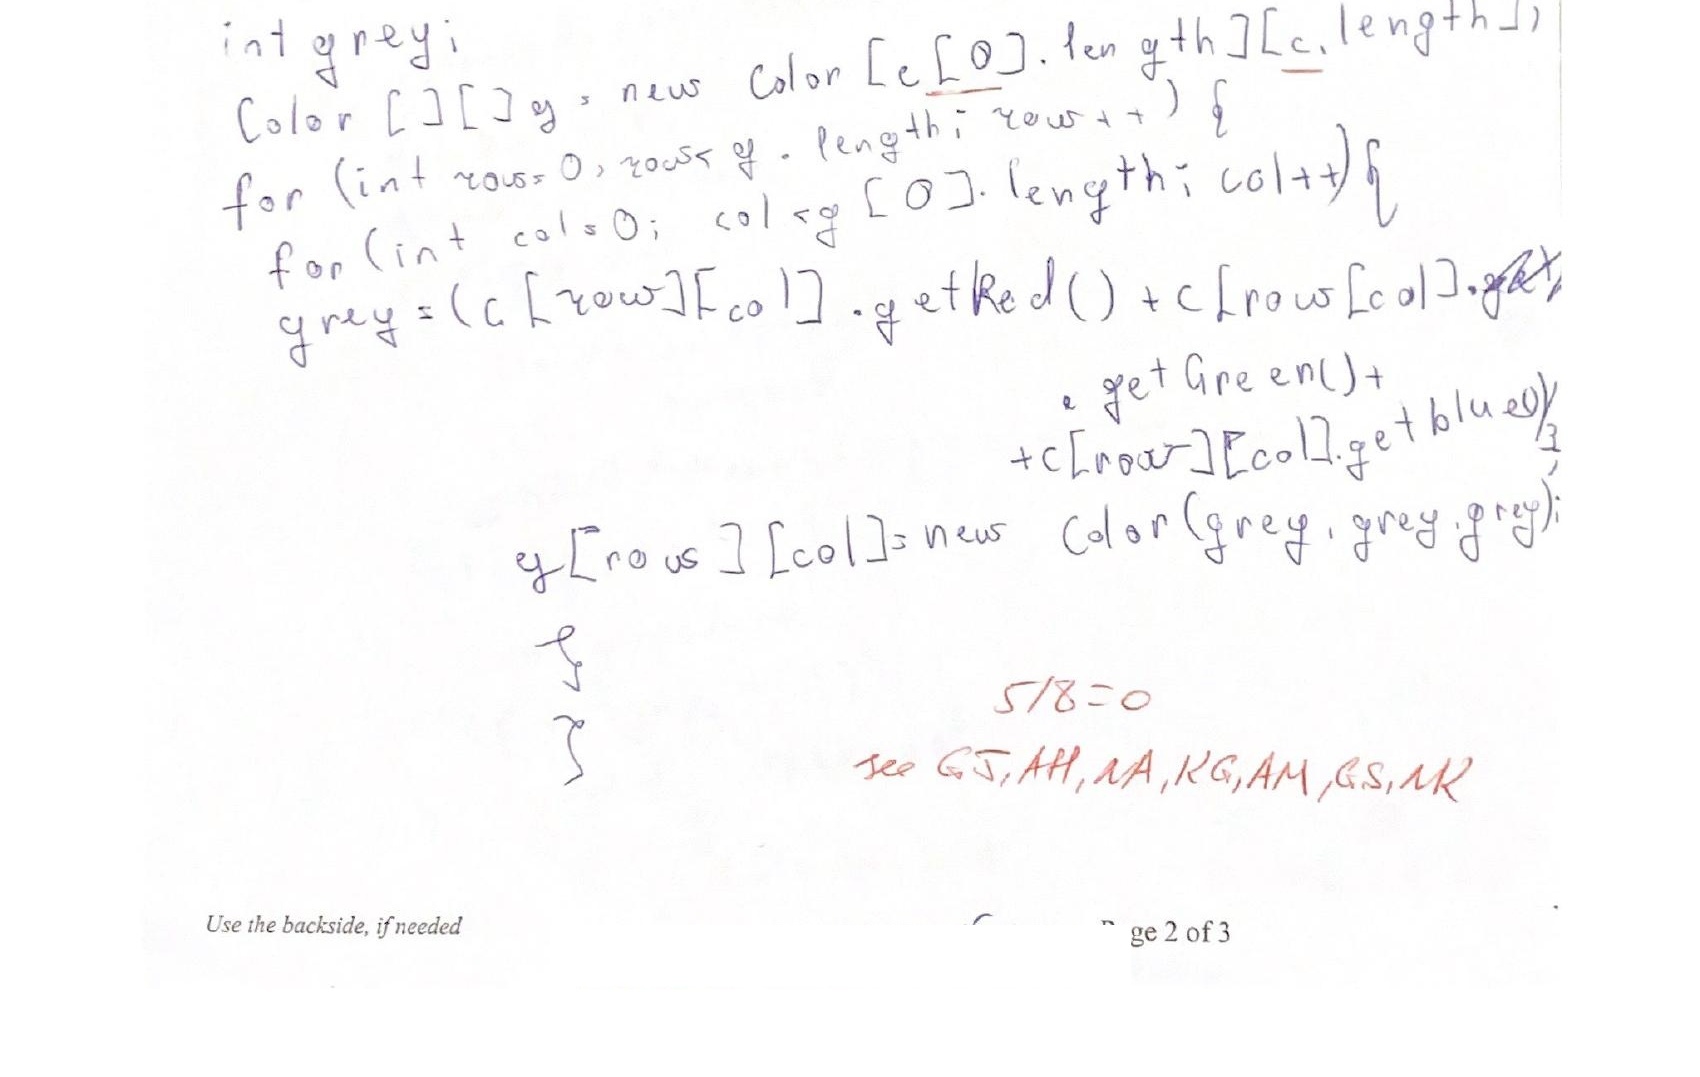 int grey;
Color [][] g = new Color [c[0].length][c.length];
for (int row=0, row<g.length; row++) {
for (int col=0; col<g[0].length; col++){
grey=(c[row][col].getRed()+c[row[col].
.getGreen()+
+c[row][col].getblue())/3;
g[row][col]=new Color(grey,grey,grey);
}
}
5/8=0
see GJ, AH, NA, KG, AM, GS, NK
Use the backside, if needed
ge 2 of 3